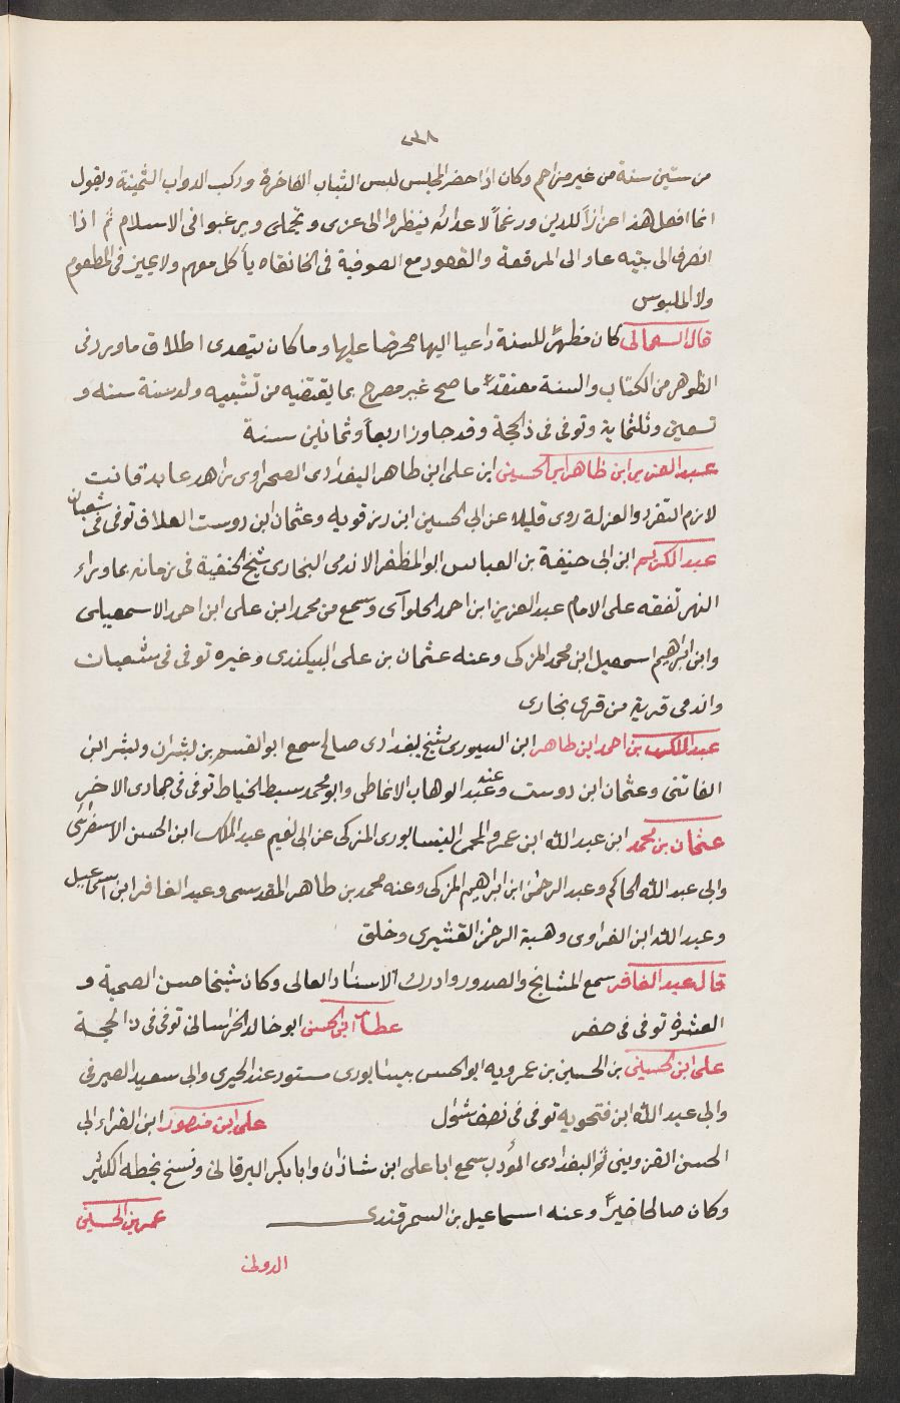 ٢٣٨
من ستين سنة من غير مزاحم وكان اذا حضر المجلس لبس الثياب الفاخرة وركب الدواب الثمينة ويقول
انما افعل هذا اعزازاً للدين ورغماً لاعدائه ينظروا الى عزى وتجملى ويرغبوا فى الاسلام ثم اذا
انصرف الى بيته عاد الى المرقعة والقعود مع الصوفية فى الخانقاه يأكل معهم ولا يميز فى المطعوم
ولا الملبوس
قال السمعانى كان مظهراً للسنة داعيا اليها محرضا عليها وما كان يتعدى اطلاق ما ورد فى
الظوهر من الكتاب والسنة معتقداً ما صح غير مصرح بما يقتضيه من تشبيه ولد سنة ستة و
تسعين وثلثماية وتوفى فى ذالحجة وقد جاوز اربعاً وثمانين سنة
عبد العزيز ابن طاهر ابن الحسين ابن على ابن طاهر البغدادى الصحراوى زاهد عابد قانت
لازم التفرد والعزلة روى قليلا عن ابى الحسين ابن رزقويه وعثمان ابن دوست العلاف توفى فى شعبان
عبد الكريم ابن ابى حنيفة بن العباس ابو المظفر الاندمى البخارى شيخ الحنفية فى زمانه بماوراء
النهر تفقه على الامام عبد العزيز ابن احمد الحلوآى وسمع من محمد ابن على ابن احمد الاسمعيلى
وابن ابراهيم اسمعيل ابن محمد المزكى وعنه عثمان بن على البيكندى وغيره توفى فى شعبان
واندمى قرية من قرى بخارى
عبد الملك بن احمد ابن طاهر ابن السيورى شيخ بغدادى صالح سمع ابو القسم بن بشران وبشر ابن
الفاتنى وعثمان ابن دوست وعنه عبد الوهاب الانماطى وابو محمد سبط الخياط توفى فى جمادى الاخر
عثمان بن محمد ابن عبد الله ابن عمرو المحمى النيسابورى المزكى عن ابى نعيم عبد الملك ابن الحسن الاسفراينى
وابى عبد الله الحاكم وعبد الرحمن ابن ابراهيم المزكى وعنه محمد بن طاهر المقدسى وعبد الغافر ابن اسماعيل
وعبد الله ابن الفراوى وهبة الرحمن القشيرى وخلق
قال عبد الغافر سمع المشايخ والصدور وادرك الاسناد العالى وكان شيخا حسن الصحبة و
العشرة توفى فى صفر عطاء ابن الحسن ابو خالد الخراسانى توفى فى ذالحجة
على ابن الحسين بن الحسين بن عمرويه ابو الحسن نيسابورى مستور عند الحيرى وابى سعيد الصيرفى
وابى عبد الله ابن فتحويه توفى فى نصف شوال على ابن منصور ابن الفراء ابى
الحسن القزوينى ثم البغدادى المؤدب سمع ابا على ابن شاذان وابا بكر البرقانى ونسخ بخطه الكثير
وكان صالحا خيراً وعنه اسماعيل بن السمرقندى عمر بن الحسين
الدونى